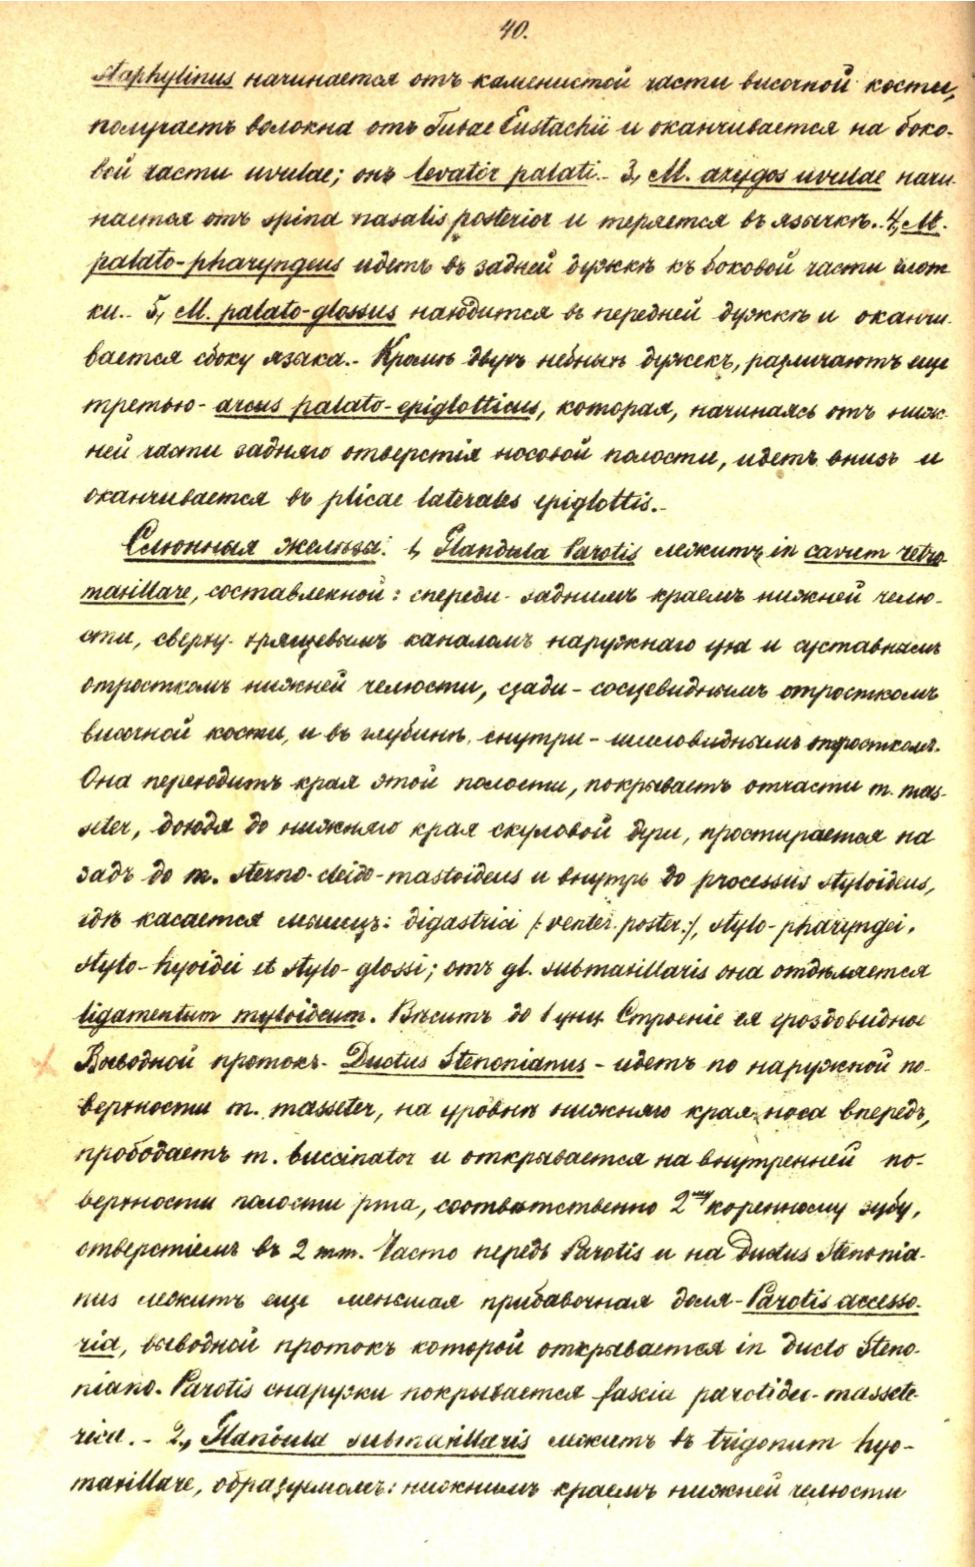 40.
staphylinus начинается отъ каменистой части височной кости,
получаетъ волокна отъ Tubae Eustachii и оканчивается на боко-
вой части uvulae; онъ levator palati.- 3, M. azygos uvulae начи-
нается отъ spina nasalis posterior и теряется въ язычкѣ.- 4, M.
palato-pharyngeus идетъ въ задней дужкѣ къ боковой части глот
ки.- 5, M. palato-glossus находится въ передней дужкѣ и оканчи-
вается сбоку языка.- Кромѣ двухъ небныхъ дужекъ, различаютъ еще
третью- arcus palato-epiglotticus, которая, начинаясь отъ ниж-
ней части задняго отверстія носовой полости, идетъ внизъ и
оканчивается въ plicae laterales epiglottis.-
Слюнныя железы: 1, Glandula Parotis лежитъ in cavum retro-
maxillare, составленной: спереди- заднимъ краемъ нижней челю-
сти, сверху- хрящевымъ каналомъ наружнаго уха и суставнымъ
отросткомъ нижней челюсти, сзади- сосцевиднымъ отросткомъ
височной кости, и въ глубинѣ, снутри- шиловиднымъ отросткомъ.
Она переходитъ края этой полости, покрываетъ отчасти m. mas-
seter, доходя до нижняго края скуловой дуги, простирается на
задъ до m. sterno-cleido-mastoideus и внутрь до processus styloideus,
гдѣ касается мышцъ: digastrici /: venter. poster.:/, stylo-pharyngei,
stylo-hyoidei et stylo-glossi; отъ gl. submaxillaris она отдѣляется
ligamentum myloideum. Вѣситъ до 1 унц. Строеніе ея гроздовидное
Выводной протокъ- Ductus Stenonianus- идетъ по наружной по-
верхности m. masseter, на уровнѣ нижняго края носа впередъ,
прободаетъ m. buccinator и открывается на внутренней по-
верхности полости рта, соотвѣтственно 2му коренному зубу,
отверстіемъ въ 2 mm. Часто передъ Parotis и на Ductus Stenonia-
nus лежитъ еще меньшая прибавочная доля- Parotis accesso-
ria, выводной протокъ которой открывается in ducto Steno-
niano. Parotis снаружи покрывается fascia parotideo-massete-
rica.- 2, Glandula submaxillaris лежитъ въ trigonum hyo-
maxillare, образуемомъ: нижнимъ краемъ нижней челюсти